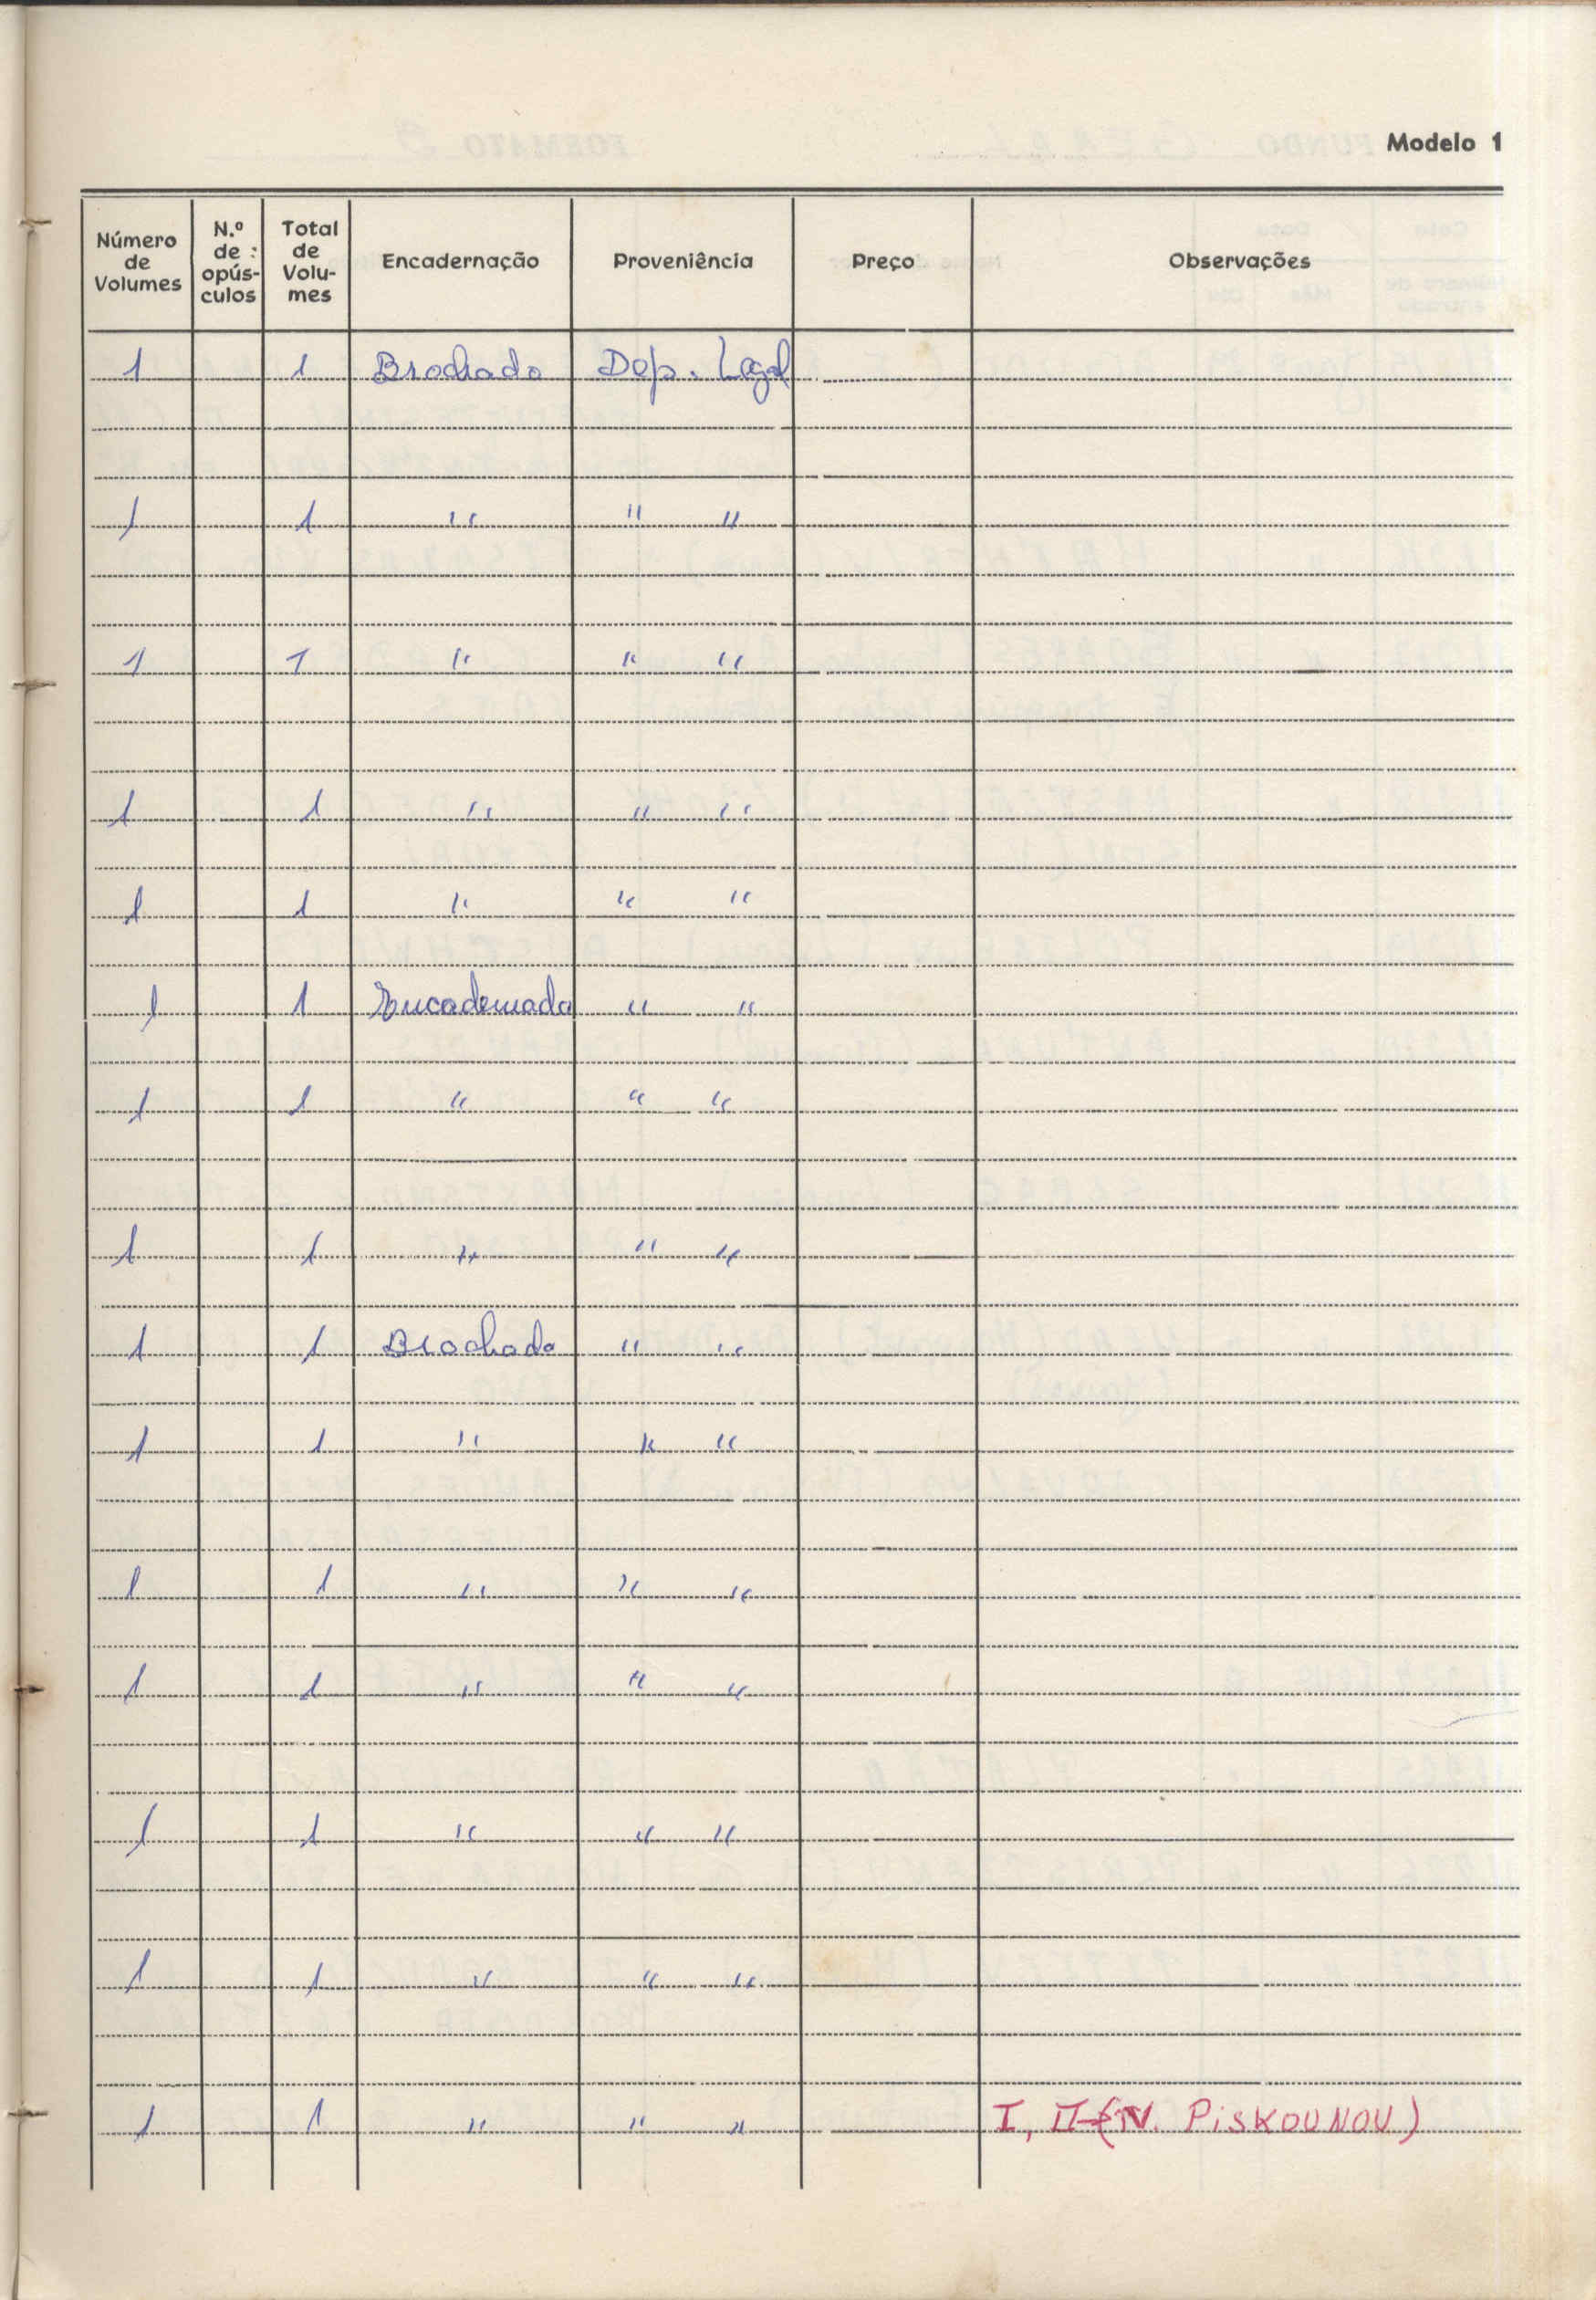 Modelo 1
Número de Volumes N.º de opús-culos Total de Volu-mes Encadernação Proveniência Preço Observações
1 1 Brochado Dep. Legal
1 1 " " "
1 1 " " "
1 1 " " "
1 1 " " "
1 1 Encadernado " "
1 1 " " "
1 1 " " "
1 1 Brochado " "
1 1 " " "
1 1 " " "
1 1 " " "
1 1 " " "
1 1 " " "
1 1 " " " I, II (N. PISKOUNOV)